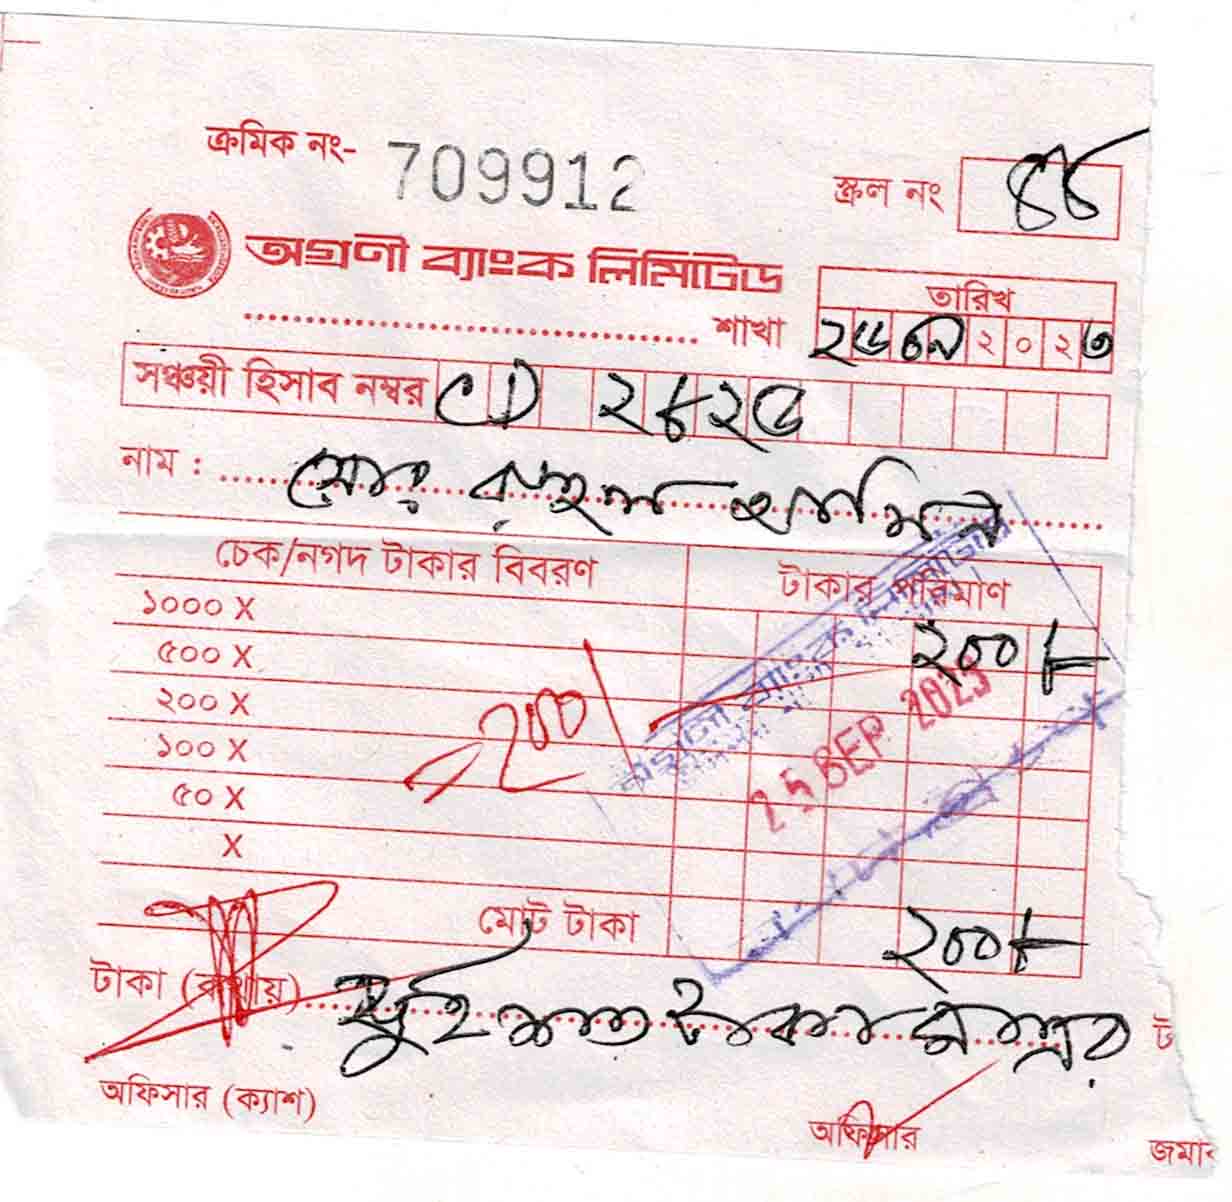 ক্রমিক নং- 709912
স্ক্রল নং ৪৮
অগ্রণী ব্যাংক লিমিটেড
শাখা
তারিখ
২৫ ০৯ ২০২৩
সঞ্চয়ী হিসাব নম্বর CD ২৮২৫
নাম : মোঃ রুহুল আমিন
চেক/নগদ টাকার বিবরণ টাকার পরিমাণ
১০০০ X ২০০/-
৫০০ X
২০০ X ২০০/
১০০ X
25 SEP 2023
৫০ X
X
মোট টাকা ২০০/-
টাকা (কথায়) দুই শত টাকা মাত্র
অফিসার (ক্যাশ)
অফিসার